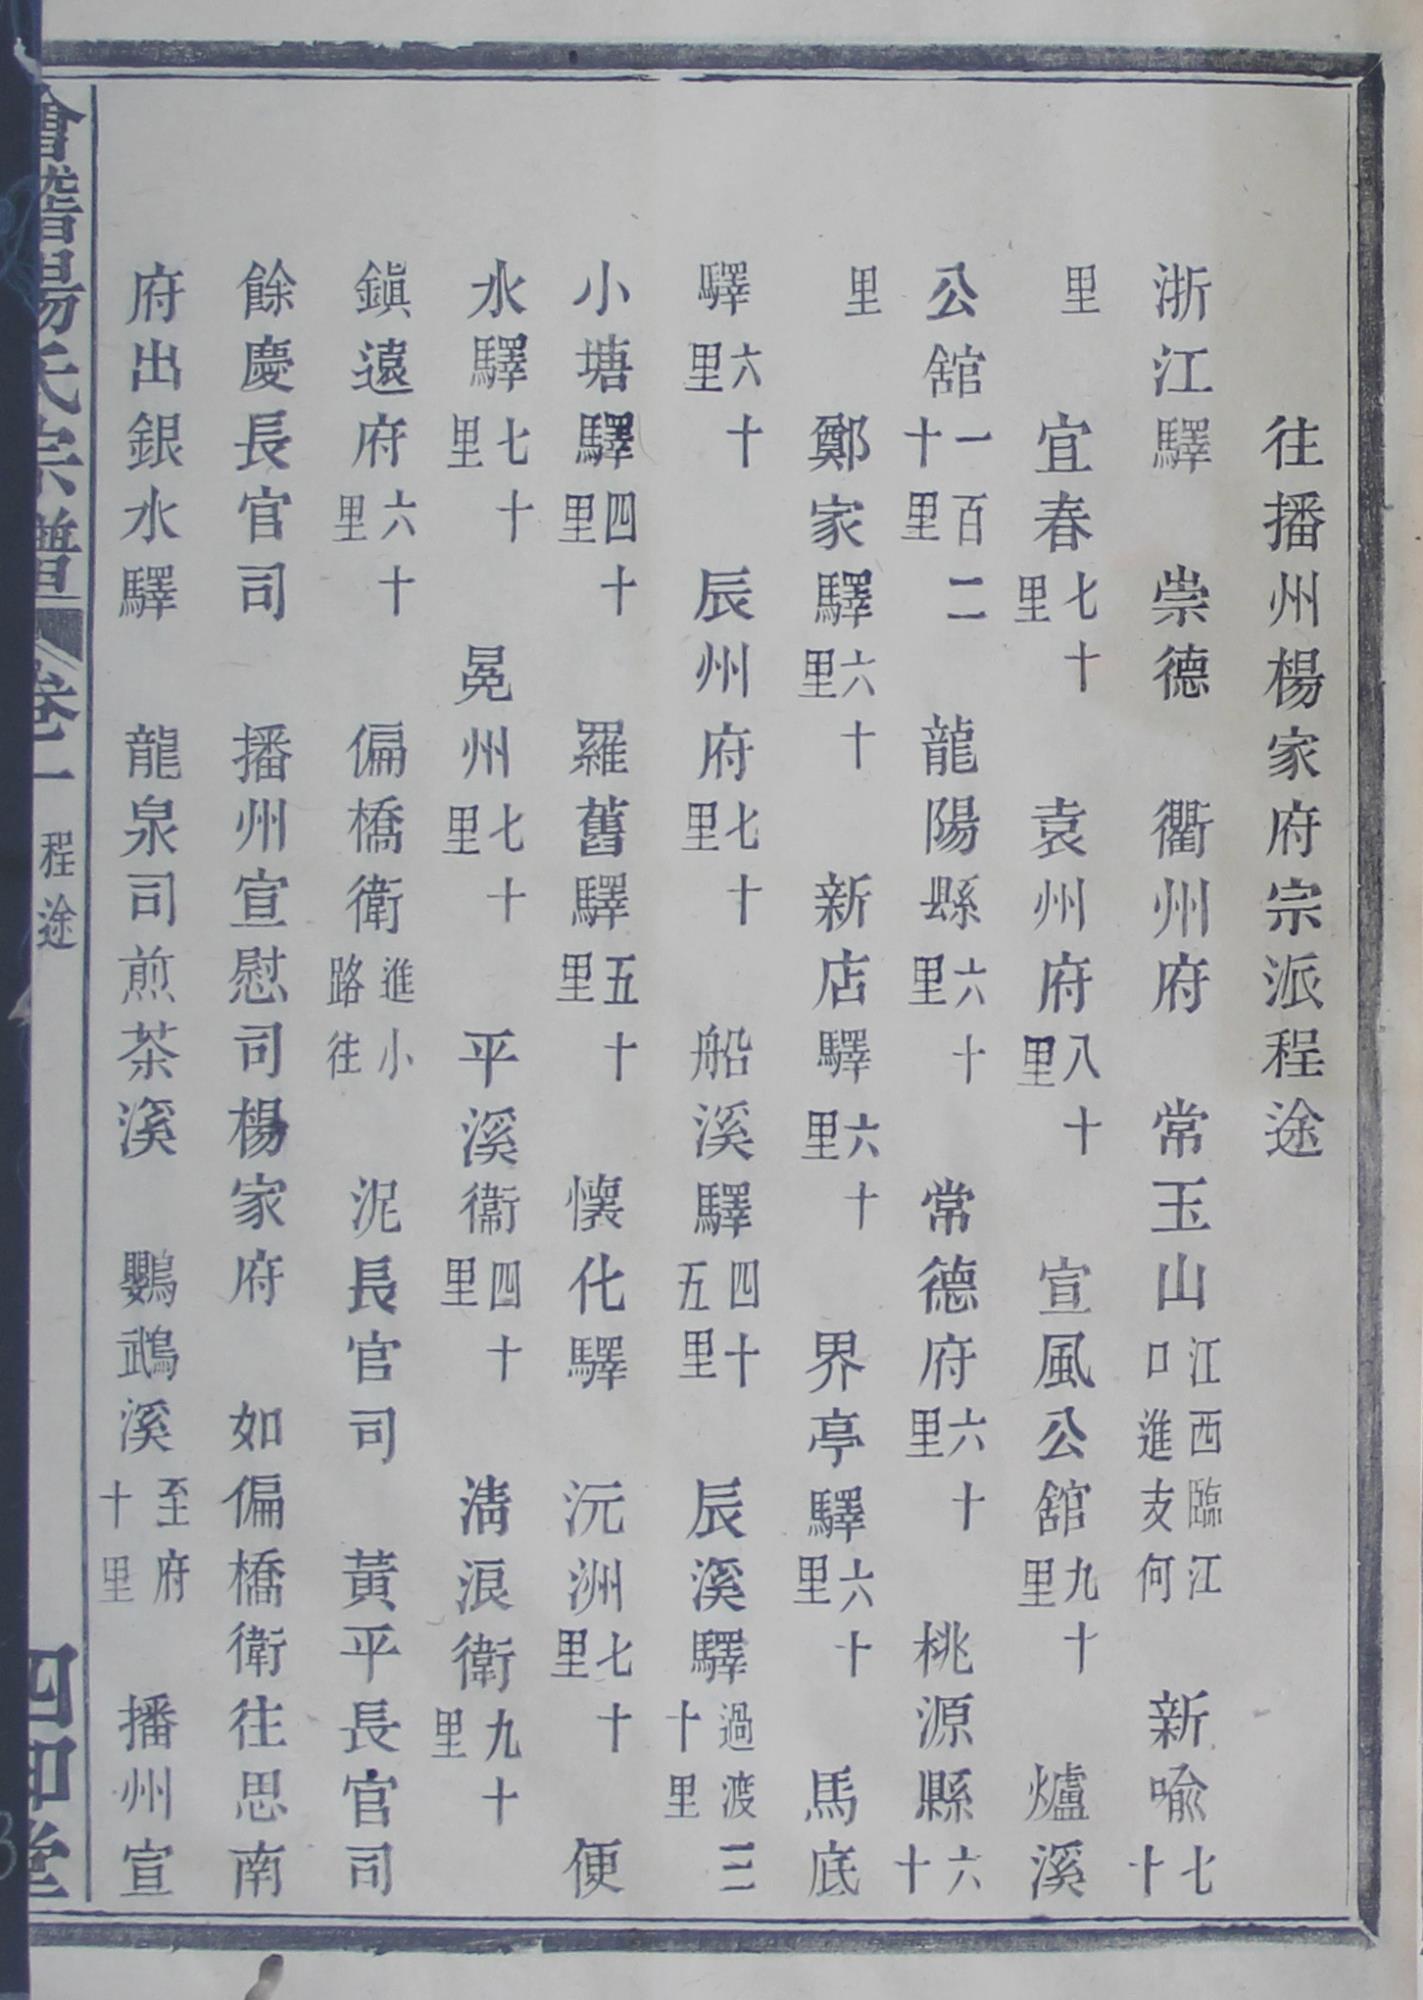 往播州楊家府宗派程途
浙江驛 崇德 衢州府 常玉山江西臨江口進支何 新喻七十
里 宜春七十里 袁州府八十里 宣風公舘九十里 爐溪
公舘一百二十里 龍陽縣六十里 常德府六十里 桃源縣六十
里 鄭家驛六十里 新店驛六十里 界亭驛六十里 馬底
驛六十里 辰州府七十里 船溪驛四十五里 辰溪驛過渡三十里
小塘驛四十里 羅舊驛五十里 懷化驛 沅洲七十里 便
水驛七十里 晃州七十里 平溪衞四十里 淸浪衛九十里
鎭遠府六十里 偏橋衛進小路往 泥長官司 黃平長官司
餘慶長官司 播州宣慰司楊家府 如偏橋衛往思南
府出銀水驛 龍泉司煎茶溪 鸚鵡溪至府十里 播州宣
會稽楊氏宗譜 卷一 程途 四知堂